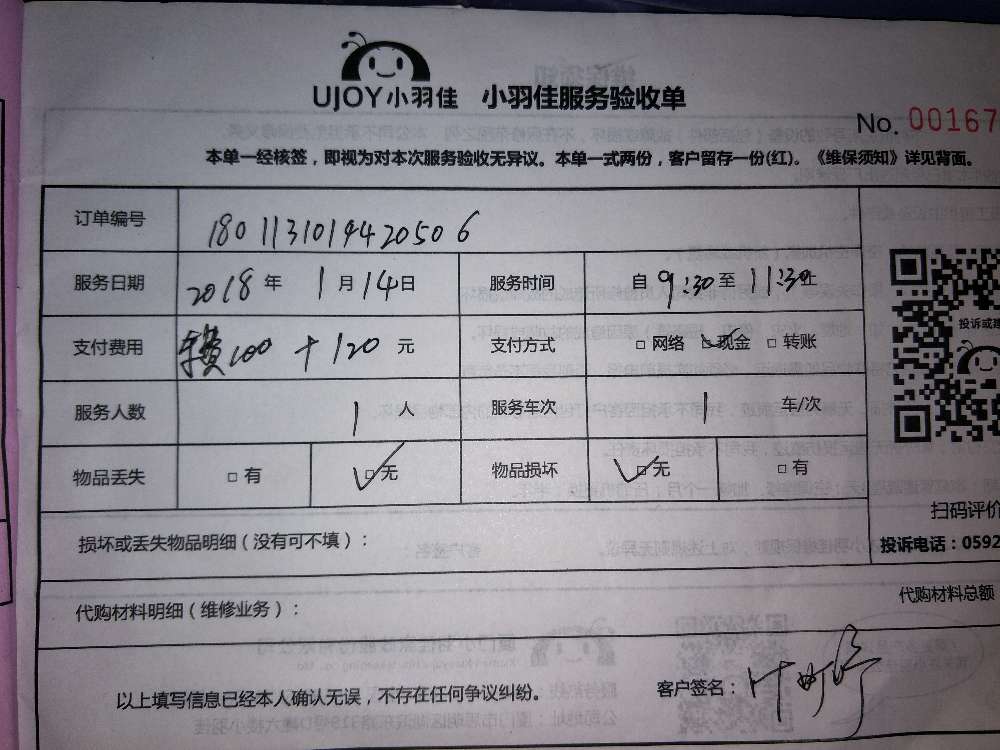 UJOY小羽佳 小羽佳服务验收单
No. 00167
本单一经核签，即视为对本次服务验收无异议。本单一式两份，客户留存一份(红)。《维保须知》详见背面。
订单编号 180113101942050 6
服务日期 2018年 1月14日 服务时间 自9:30至11:30止
支付费用 100 + 120 元 支付方式 □ 网络 ☑现金 □ 转账
服务人数 1 人 服务车次 1 车/次
物品丢失 □ 有 ☑无 物品损坏 ☑无 □ 有
投诉或建
扫码评价
损坏或丢失物品明细（没有可不填）：
投诉电话：0592
代购材料明细（维修业务）：
代购材料总额
以上填写信息已经本人确认无误，不存在任何争议纠纷。 客户签名：叶